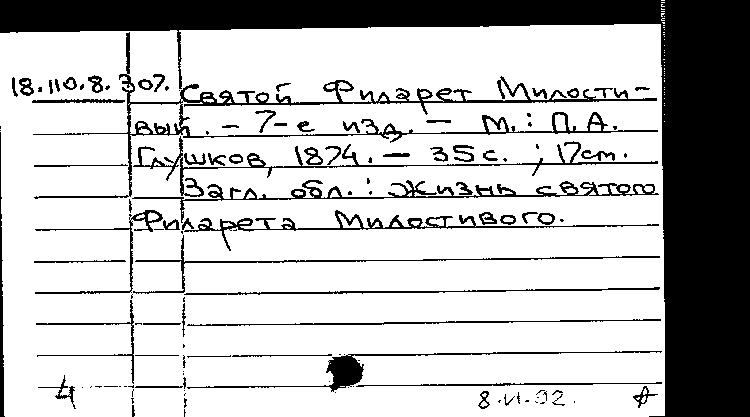 18.110.8.307. Святой Филарет Милости-
вый. - 7-е изд. - М. : П.А.
Глушков, 1874. - 35 с. ; 17 см.
Загл. обл. : Жизнь святого
Филарета Милостивого.
4